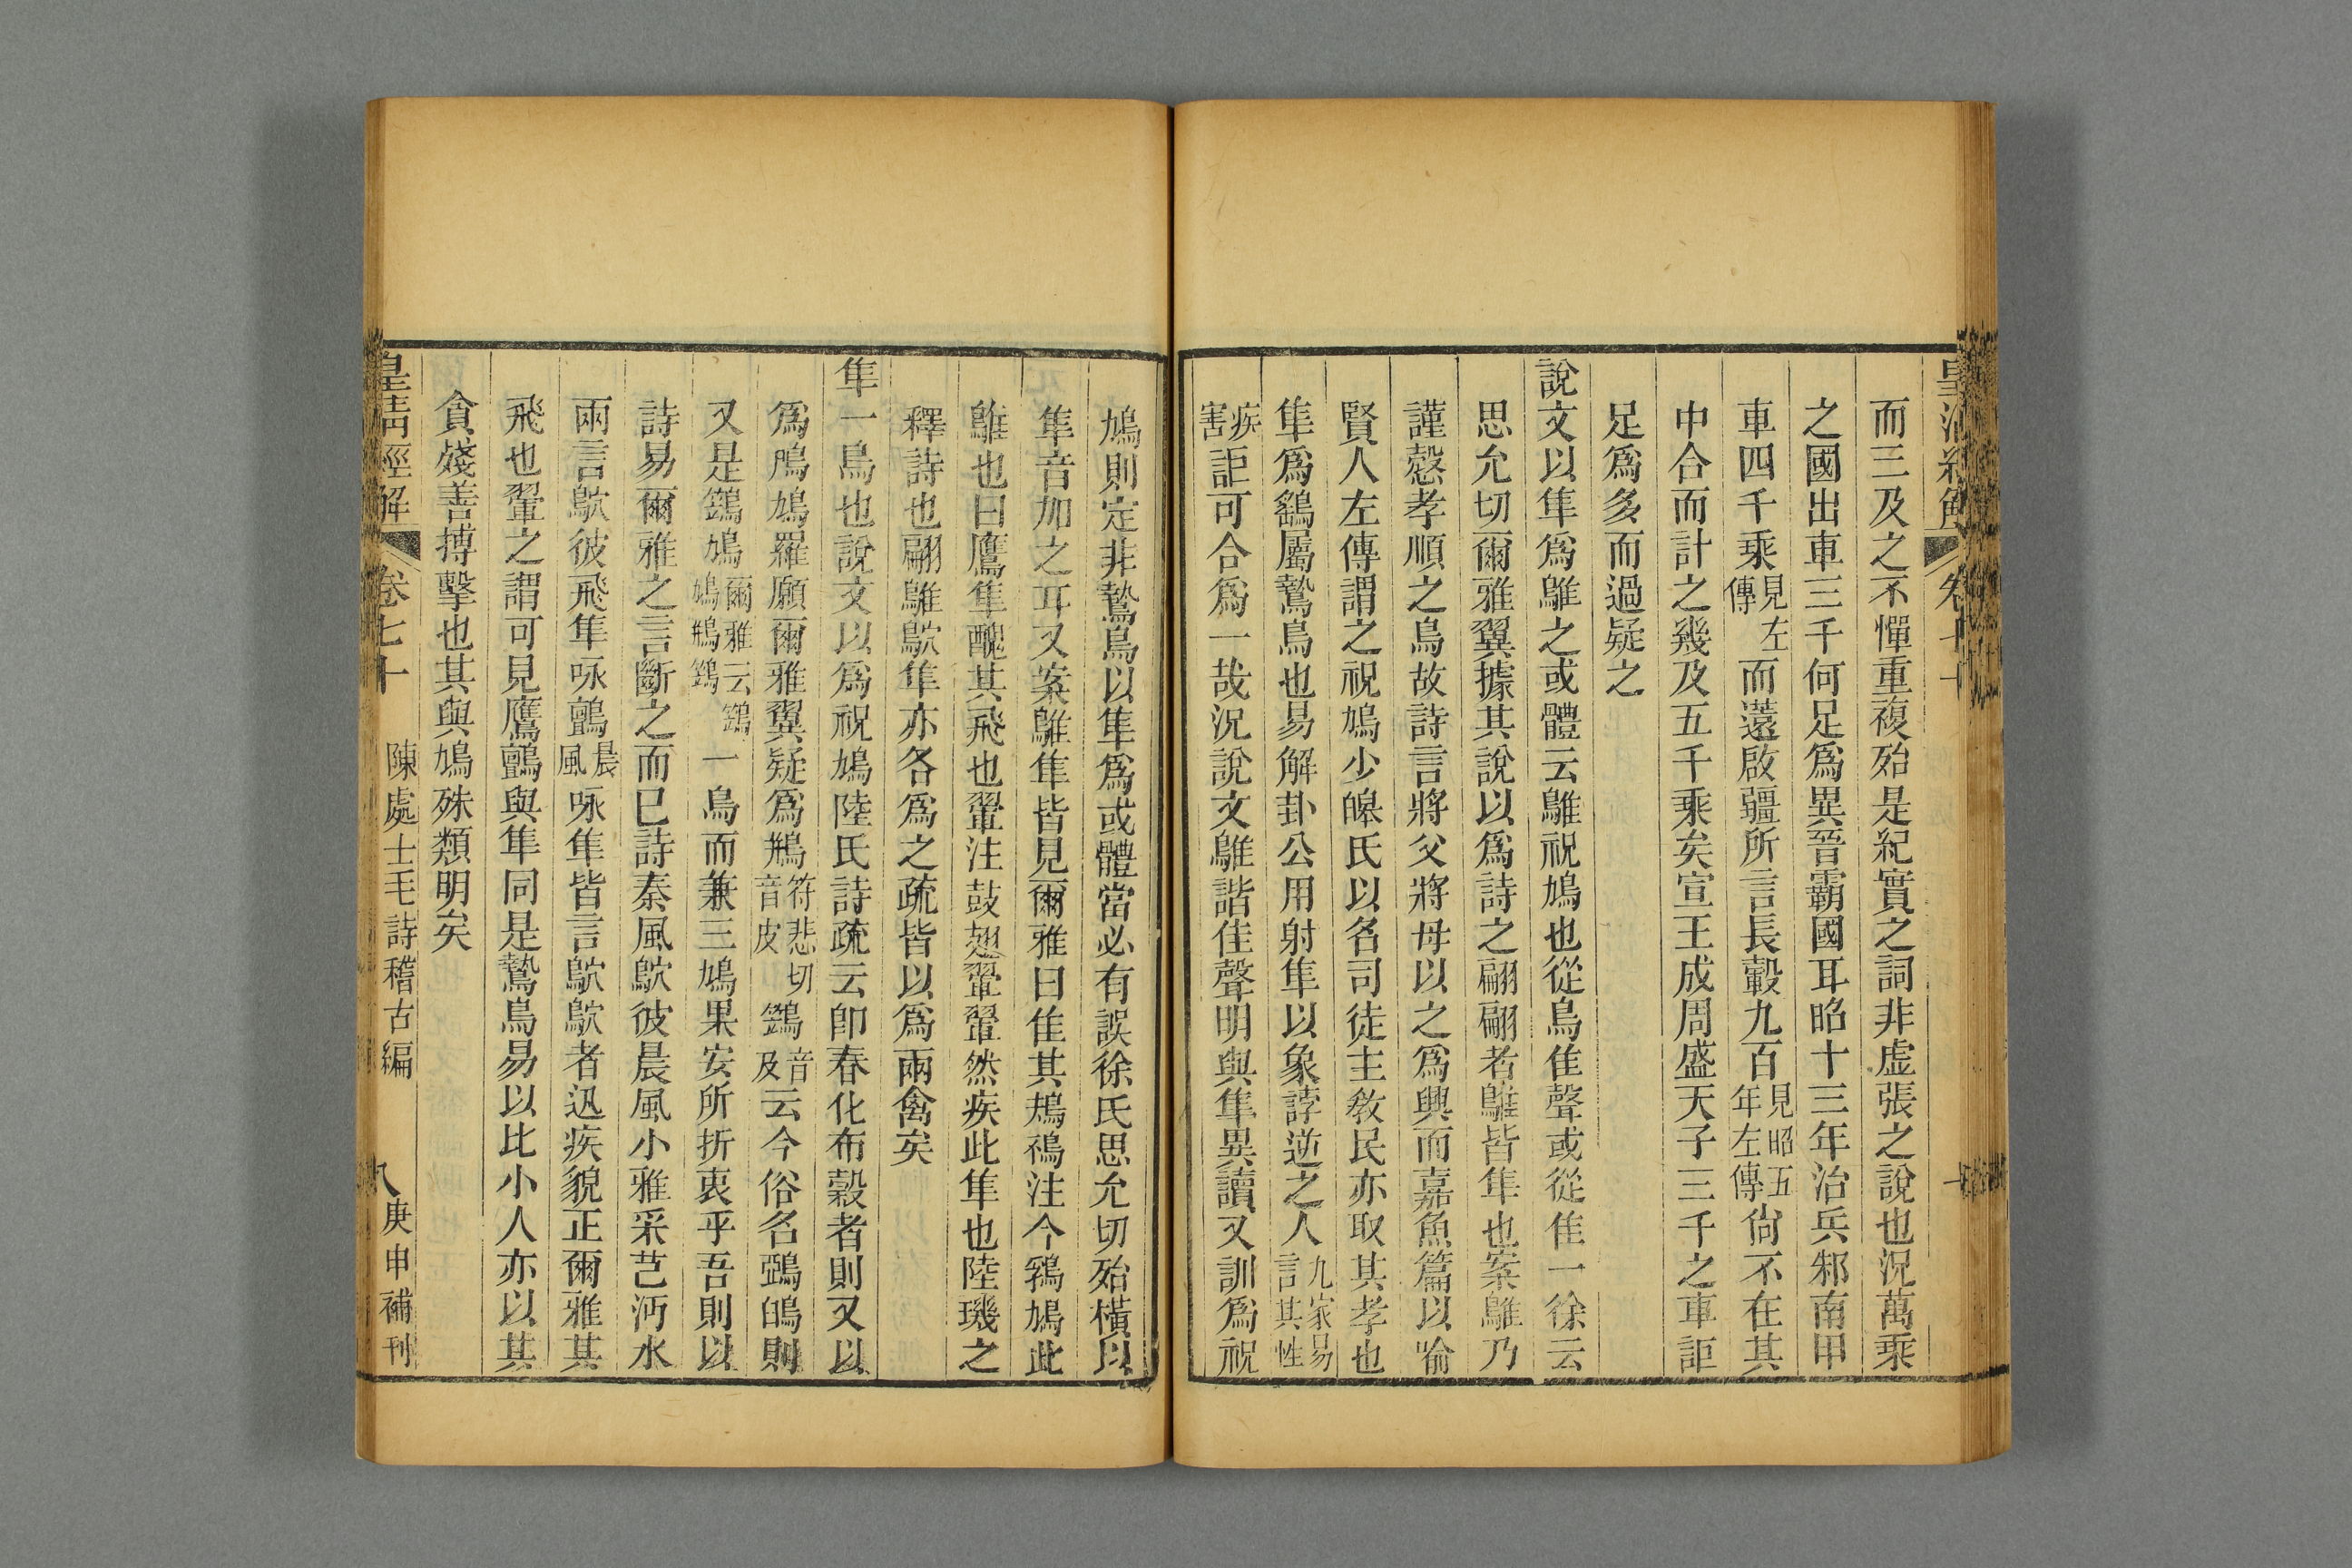 皇清經解 卷七十
而三及之不憚重複殆是紀實之詞非虛張之說也況萬乘
之國出車三千何足爲異晉霸國耳昭十三年治兵邾南甲
車四千乘見左傳而薳啟疆所言長轂九百見昭五年左傳尙不在其
中合而計之幾及五千乘矣宣王成周盛天子三千之車詎
足爲多而過疑之
說文以隼爲鵻之或體云鵻祝鳩也從鳥隹聲或從隹一徐云
思允切爾雅翼據其說以爲詩之翩翩者鵻皆隼也案鵻乃
謹愨孝順之鳥故詩言將父將母以之爲興而嘉魚篇以喻
賢人左傳謂之祝鳩少皞氏以名司徒主敎民亦取其孝也
隼爲鷂屬鷙鳥也易解卦公用射隼以象誖逆之人九家易言其性
疾害詎可合爲一哉況說文鵻諧隹聲明與隼異讀又訓爲祝
鳩則定非鷙鳥以隼爲或體當必有誤徐氏思允切殆橫以
隼音加之耳又案鵻隼皆見爾雅曰隹其鳺鴀注今鶵鳩此
鵻也曰鷹隼醜其飛也翬注鼓翅翬翬然疾此隼也陸璣之
釋詩也翩鵻鴥隼亦各爲之疏皆以爲兩禽矣
隼一鳥也說文以爲祝鳩陸氏詩疏云卽春化布穀者則又以
爲鳲鳩羅願爾雅翼疑爲鵧符悲切音皮鷑音及云今俗名鵶鴭則
又是鷑鳩爾雅云鷑鳩鵧鷑一鳥而兼三鳩果安所折衷乎吾則以
詩易爾雅之言斷之而已詩秦風鴥彼晨風小雅采芑沔水
兩言鴥彼飛隼咏鸇晨風咏隼皆言鴥鴥者迅疾貌正爾雅其
飛也翬之謂可見鷹鸇與隼同是鷙鳥易以比小人亦以其
貪殘善搏擊也其與鳩殊類明矣
皇淸經解 卷七十 陳處士毛詩稽古編 八 庚申補刊